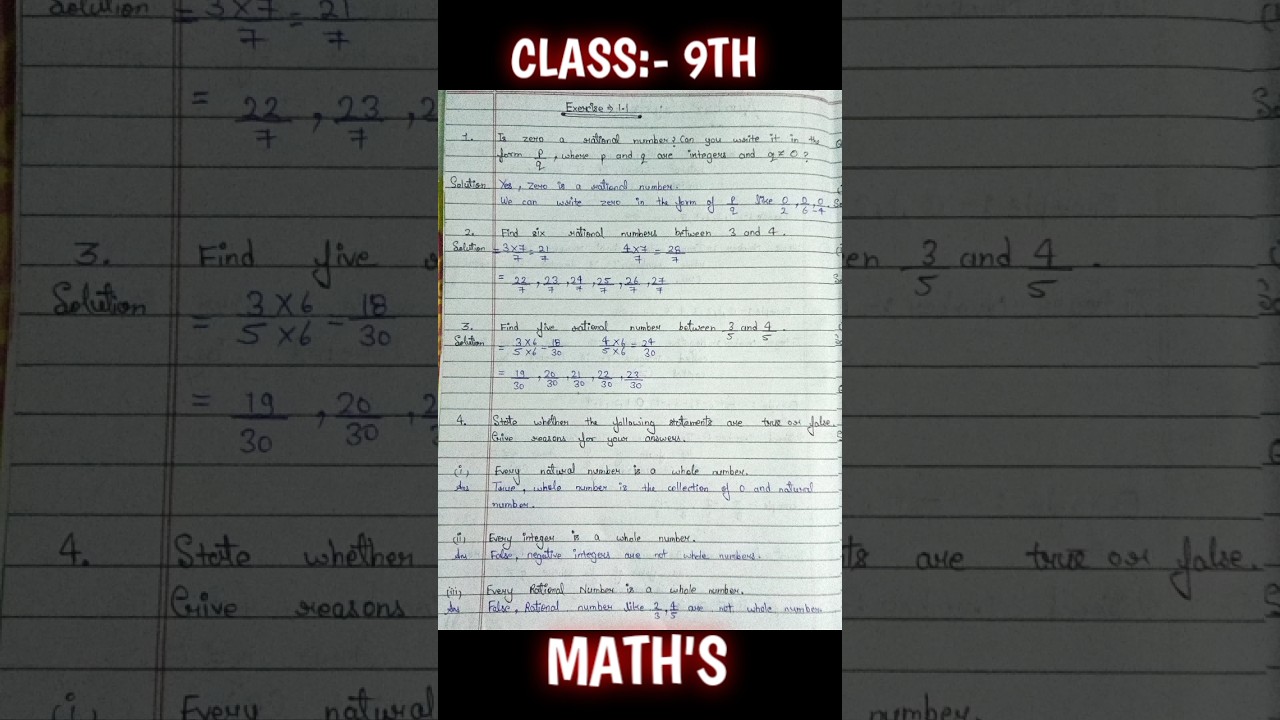 CLASS:- 9TH
Exercise → 1.1
1. Is zero a rational number? Can you write it in the
form p/q, where p and q are integers and q ≠ 0?
Solution Yes, zero is a rational number.
We can write zero in the form of p/q like 0/2, 0/6, 0/-4.
2. Find six rational numbers between 3 and 4.
Solution = 3×7/7 = 21/7 4×7/7 = 28/7
= 22/7, 23/7, 24/7, 25/7, 26/7, 27/7
3. Find five rational number between 3/5 and 4/5.
Solution = 3×6/5×6 = 18/30 4×6/5×6 = 24/30
= 19/30, 20/30, 21/30, 22/30, 23/30
4. State whether the following statements are true or false.
Give reasons for your answers.
(i) Every natural number is a whole number.
Ans True, whole number is the collection of 0 and natural
number.
(ii) Every integer is a whole number.
Ans False, negative integers are not whole numbers.
(iii) Every Rational Number is a whole number.
Ans False, Rational number like 2/3, 4/5 are not whole number
MATH'S